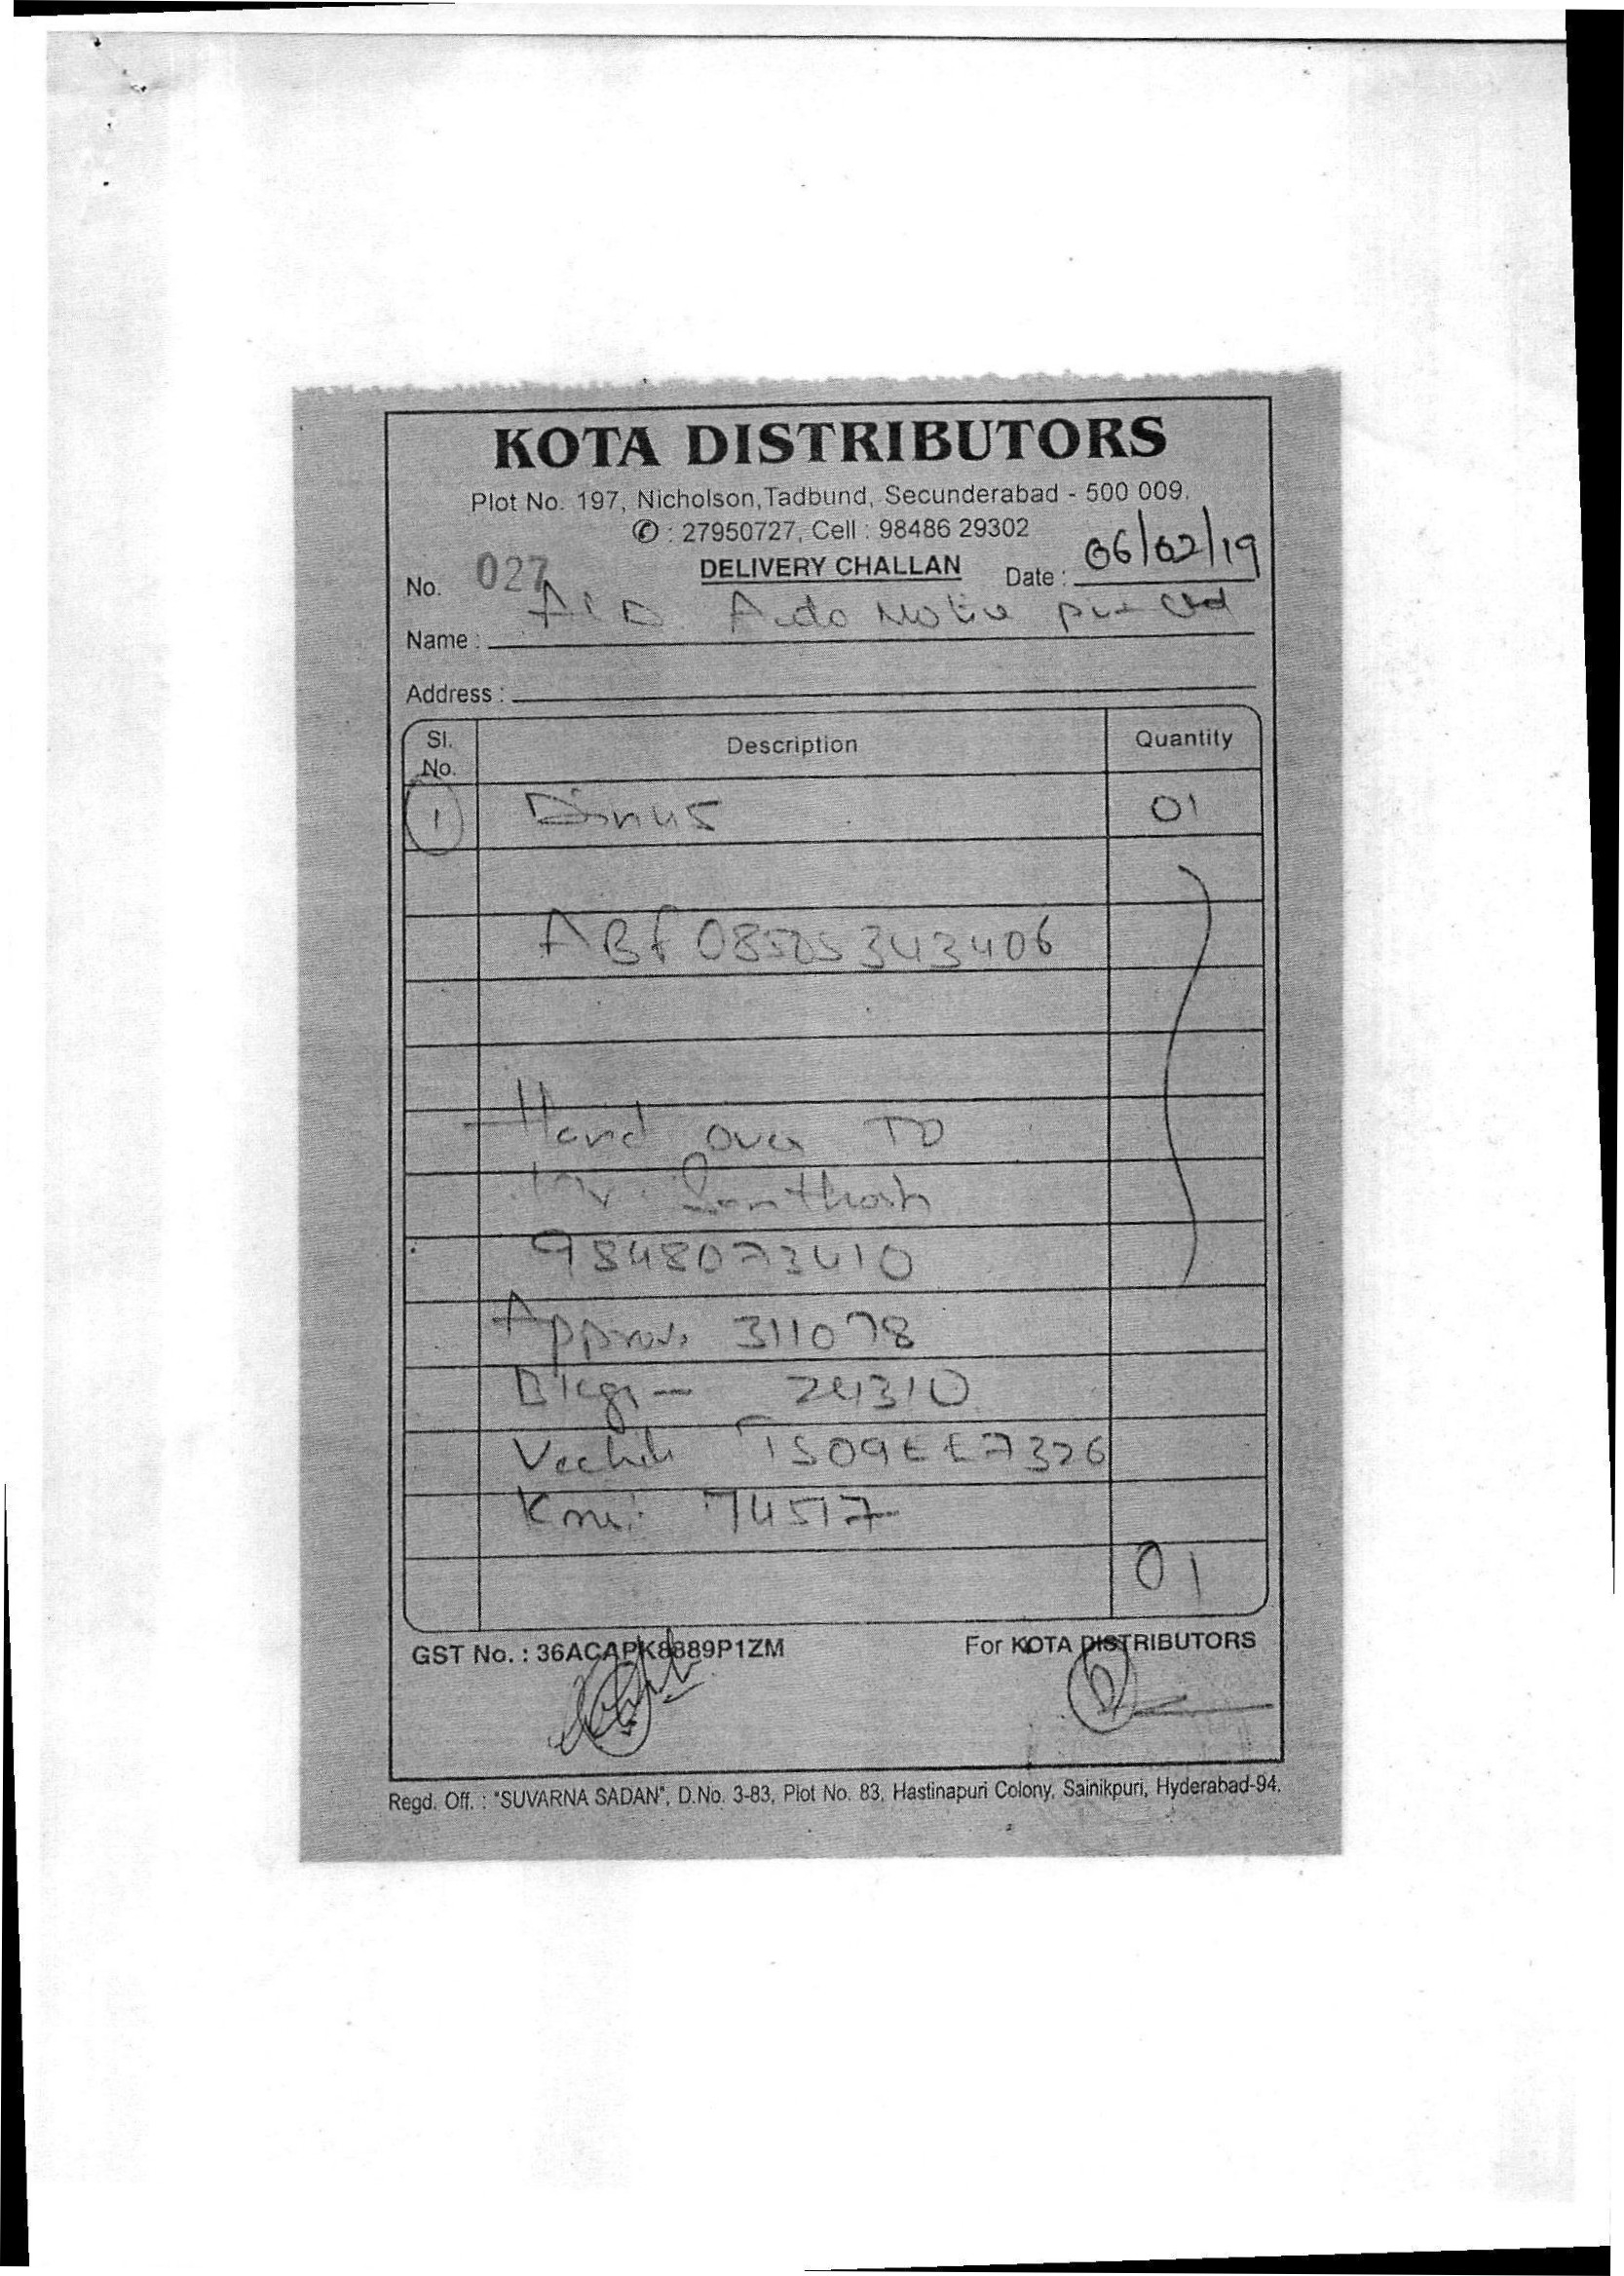 KOTA DISTRIBUTORS
Plot No. 197, Nicholson, Tadbund, Secunderabad - 500 009.
✆ : 27950727, Cell : 98486 29302
No. 027 DELIVERY CHALLAN Date : 06/02/19
Name :
Address :
Sl. No. Description Quantity
1 01
Hand over TO
Mr. Santhosh
9848073410
311078
24310
TS09EE7326
74517
01
GST No. : 36ACAPK8889P1ZM For KOTA DISTRIBUTORS
Regd. Off. : "SUVARNA SADAN", D.No. 3-83, Plot No. 83, Hastinapuri Colony, Sainikpuri, Hyderabad-94.